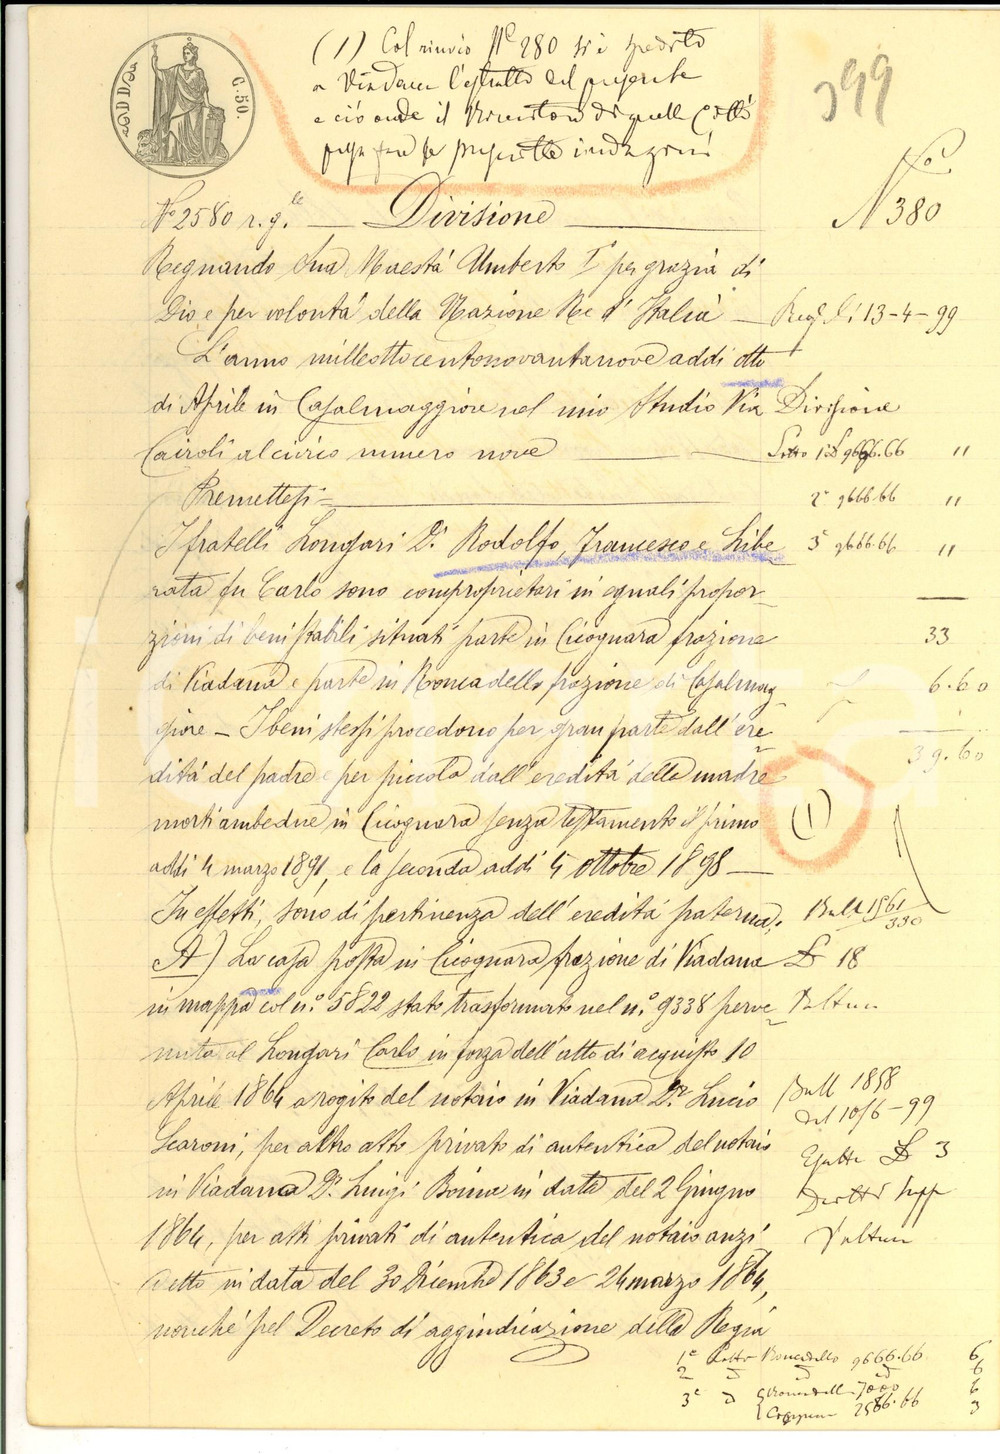 ADDA
C. 50.
(1) Col rinvio N° 280 si è spedito
a Viadana l'estratto del presente
acciò onde il Ricevitore di quella Città
399
N° 2580 r. g.le Divisione
N° 380
Regnando Sua Maestà Umberto I° per grazia di
Dio e per volontà della Nazione Re d'Italia
Reg. li 13-4-99
L'anno milleottocentonovantanove addì otto
di Aprile in Casalmaggiore nel mio Studio Via
Divisione
Cairoli al civico numero nove
Lotto 1° £ 9666.66 "
Premettesi=
2° 9666.66 "
I fratelli Longari Dr. Rodolfo, Francesco e Libe
3° 9666.66 "
rata fu Carlo sono comproprietari in eguali propor
zioni di beni stabili situati parte in Cicognara frazione
33
di Viadana e parte in Roncadello frazione di Casalmag
6.60
giore - I beni stessi procedono per gran parte dall'ere
39.60
dità del padre e per piccola dall'eredità della madre
morti ambedue in Cicognara senza testamento il primo
(1)
addì 4 marzo 1891, e la seconda addì 4 ottobre 1898
In effetti, sono di pertinenza dell'eredità paterna:
Boll 1561
330
A) La casa posta in Cicognara frazione di Viadana
£ 18
in mappa col n.° 5822 stato trasformato nel n.° 9338 perve
nuta al Longari Carlo in forza dell'atto di acquisto 10
Aprile 1864 a rogito del notaio in Viadana Dr. Lucio
Boll 1858
del 10/6-99
Scaroni, per altro atto privato di autentica del notaio
Esatte £ 3
in Viadana Dr. Luigi Bonina in data del 2 Giugno
Diritti supp
1864, per atti privati di autentica del notaio anzi
detto in data del 30 Dicembre 1863 e 24 marzo 1864,
nonchè pel Decreto di aggiudicazione della Regia
1° Lotto Roncadello 9666.66 6
2 " " " 6
3° " Roncadello 7000 6
2566.66 3